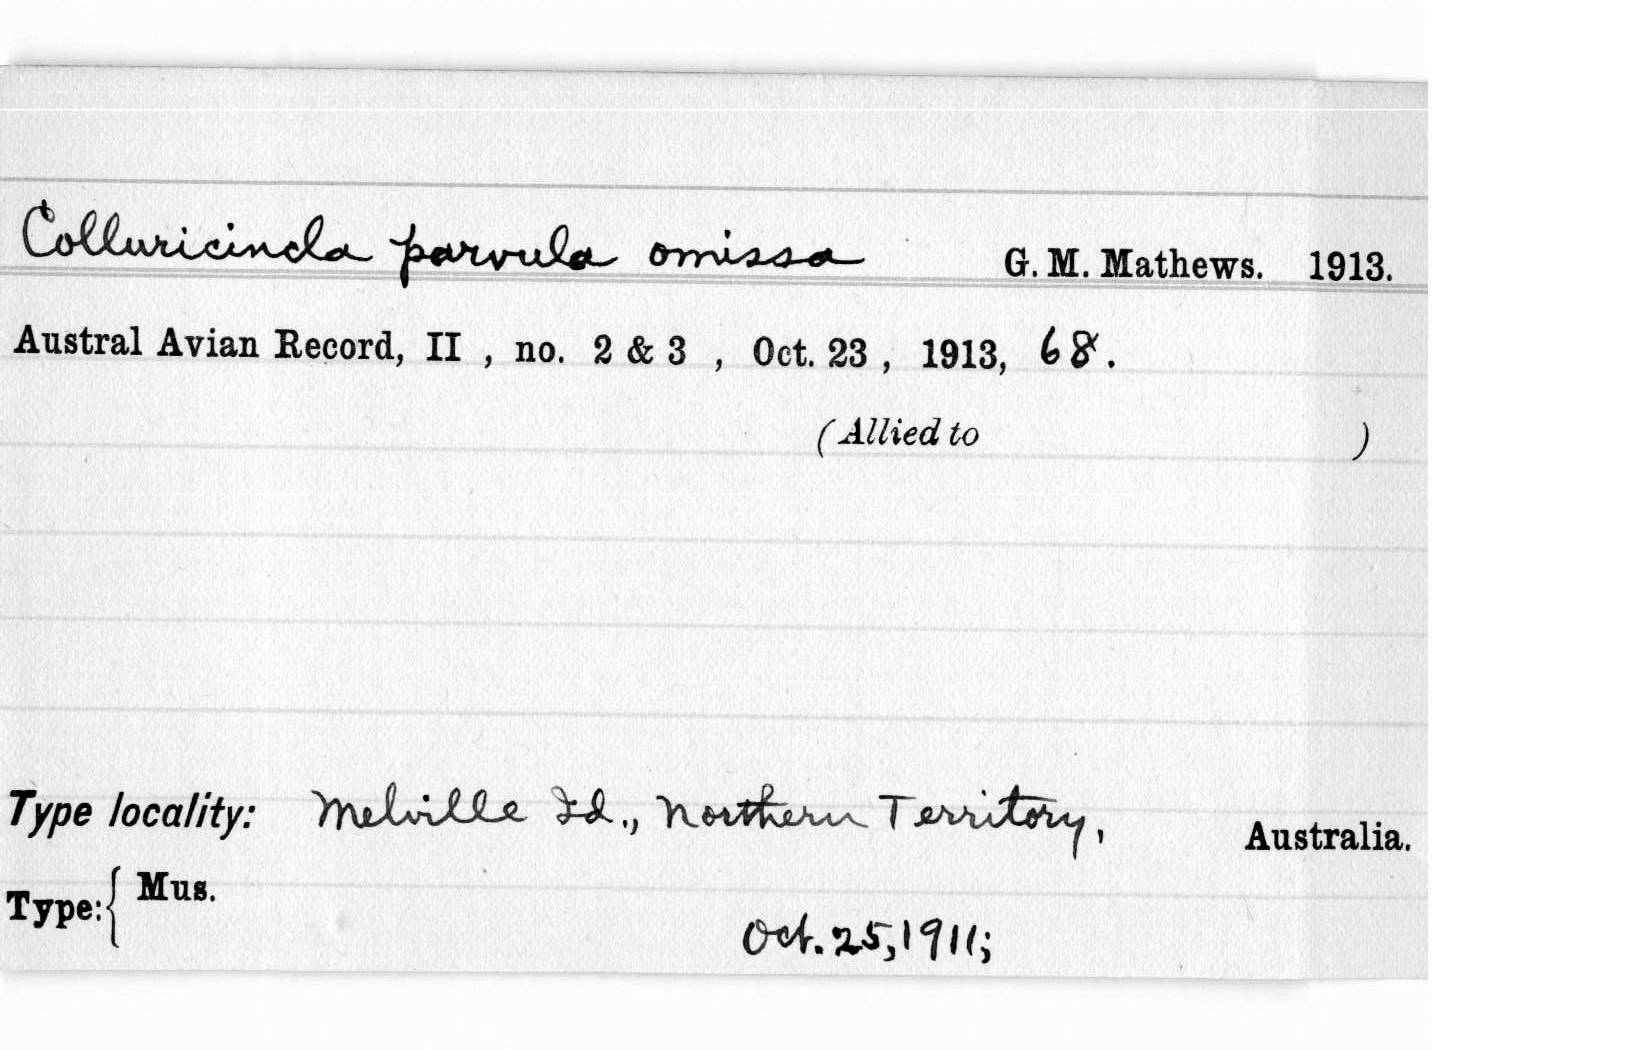 Colluricincla parvula omissa G. M. Mathews. 1913.
Austral Avian Record, II , no. 2 & 3 , Oct. 23 , 1913, 68.
(Allied to )
Type locality: Melville Id., Northern Territory, Australia.
Type: { Mus.
Oct. 25, 1911;